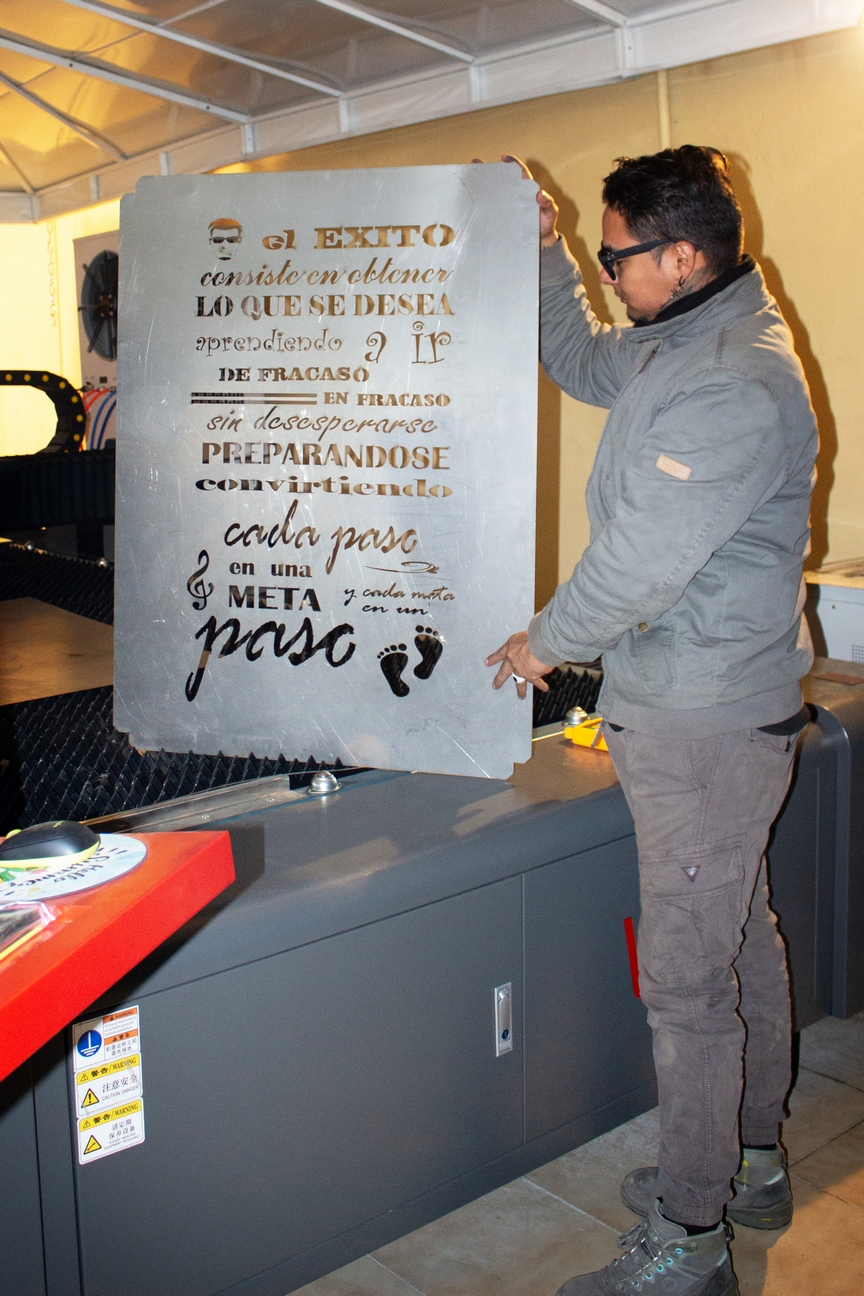 el EXITO
consiste en obtener
LO QUE SE DESEA
aprendiendo a ir
DE FRACASO
EN FRACASO
sin desesperarse
PREPARANDOSE
convirtiendo
cada paso
en una
META
y cada meta
en un
paso
Hello
Summer
警告/WARNING
注意安全
CAUTION DANGER
警告/WARNING
请定期
保养设备